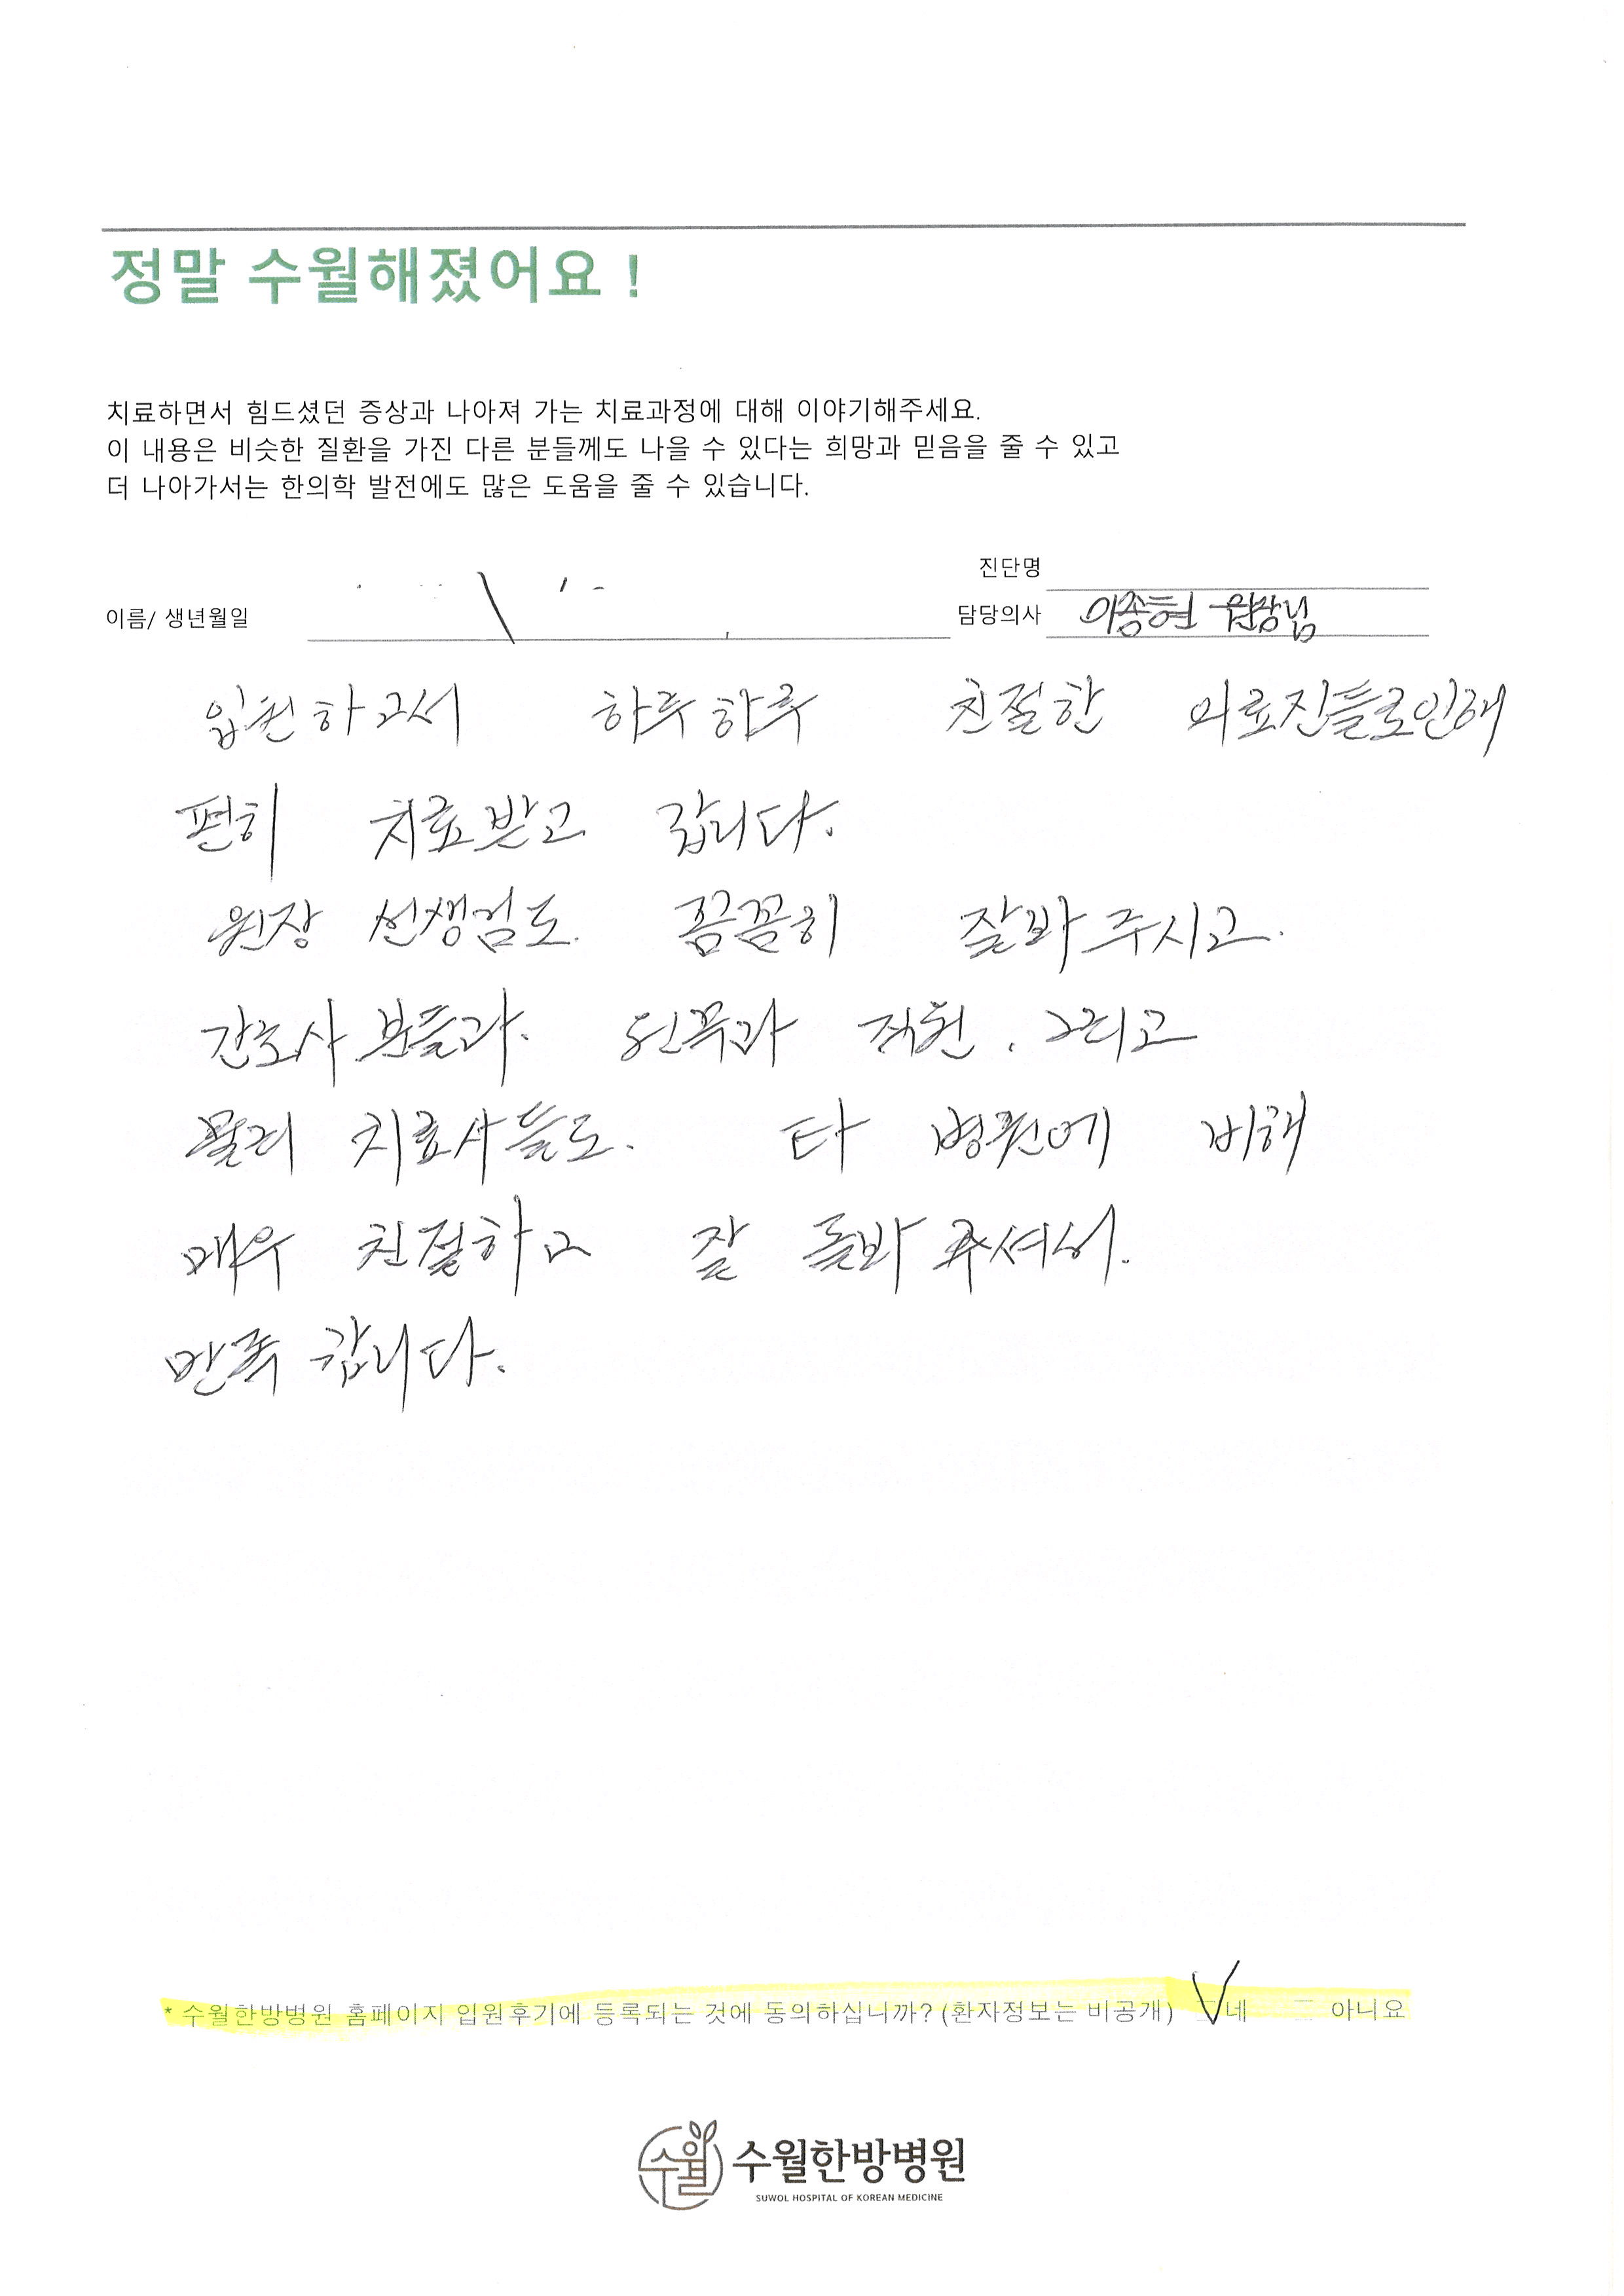 정말 수월해졌어요 !
치료하면서 힘드셨던 증상과 나아져 가는 치료과정에 대해 이야기해주세요.
이 내용은 비슷한 질환을 가진 다른 분들께도 나을 수 있다는 희망과 믿음을 줄 수 있고
더 나아가서는 한의학 발전에도 많은 도움을 줄 수 있습니다.
진단명
이름/ 생년월일
담당의사 이종현 원장님
입원하고서 하루하루 친절한 의료진들로인해
편히 치료받고 갑니다.
원장 선생님도 꼼꼼히 잘봐주시고.
간호사 분들과. 직원. 그리고
물리 치료사들도. 타 병원에 비해
매우 친절하고 잘 돌봐 주셔서.
만족 합니다.
* 수월한방병원 홈페이지 입원후기에 등록되는 것에 동의하십니까? (환자정보는 비공개) 네 아니요
수월 수월한방병원
SUWOL HOSPITAL OF KOREAN MEDICINE